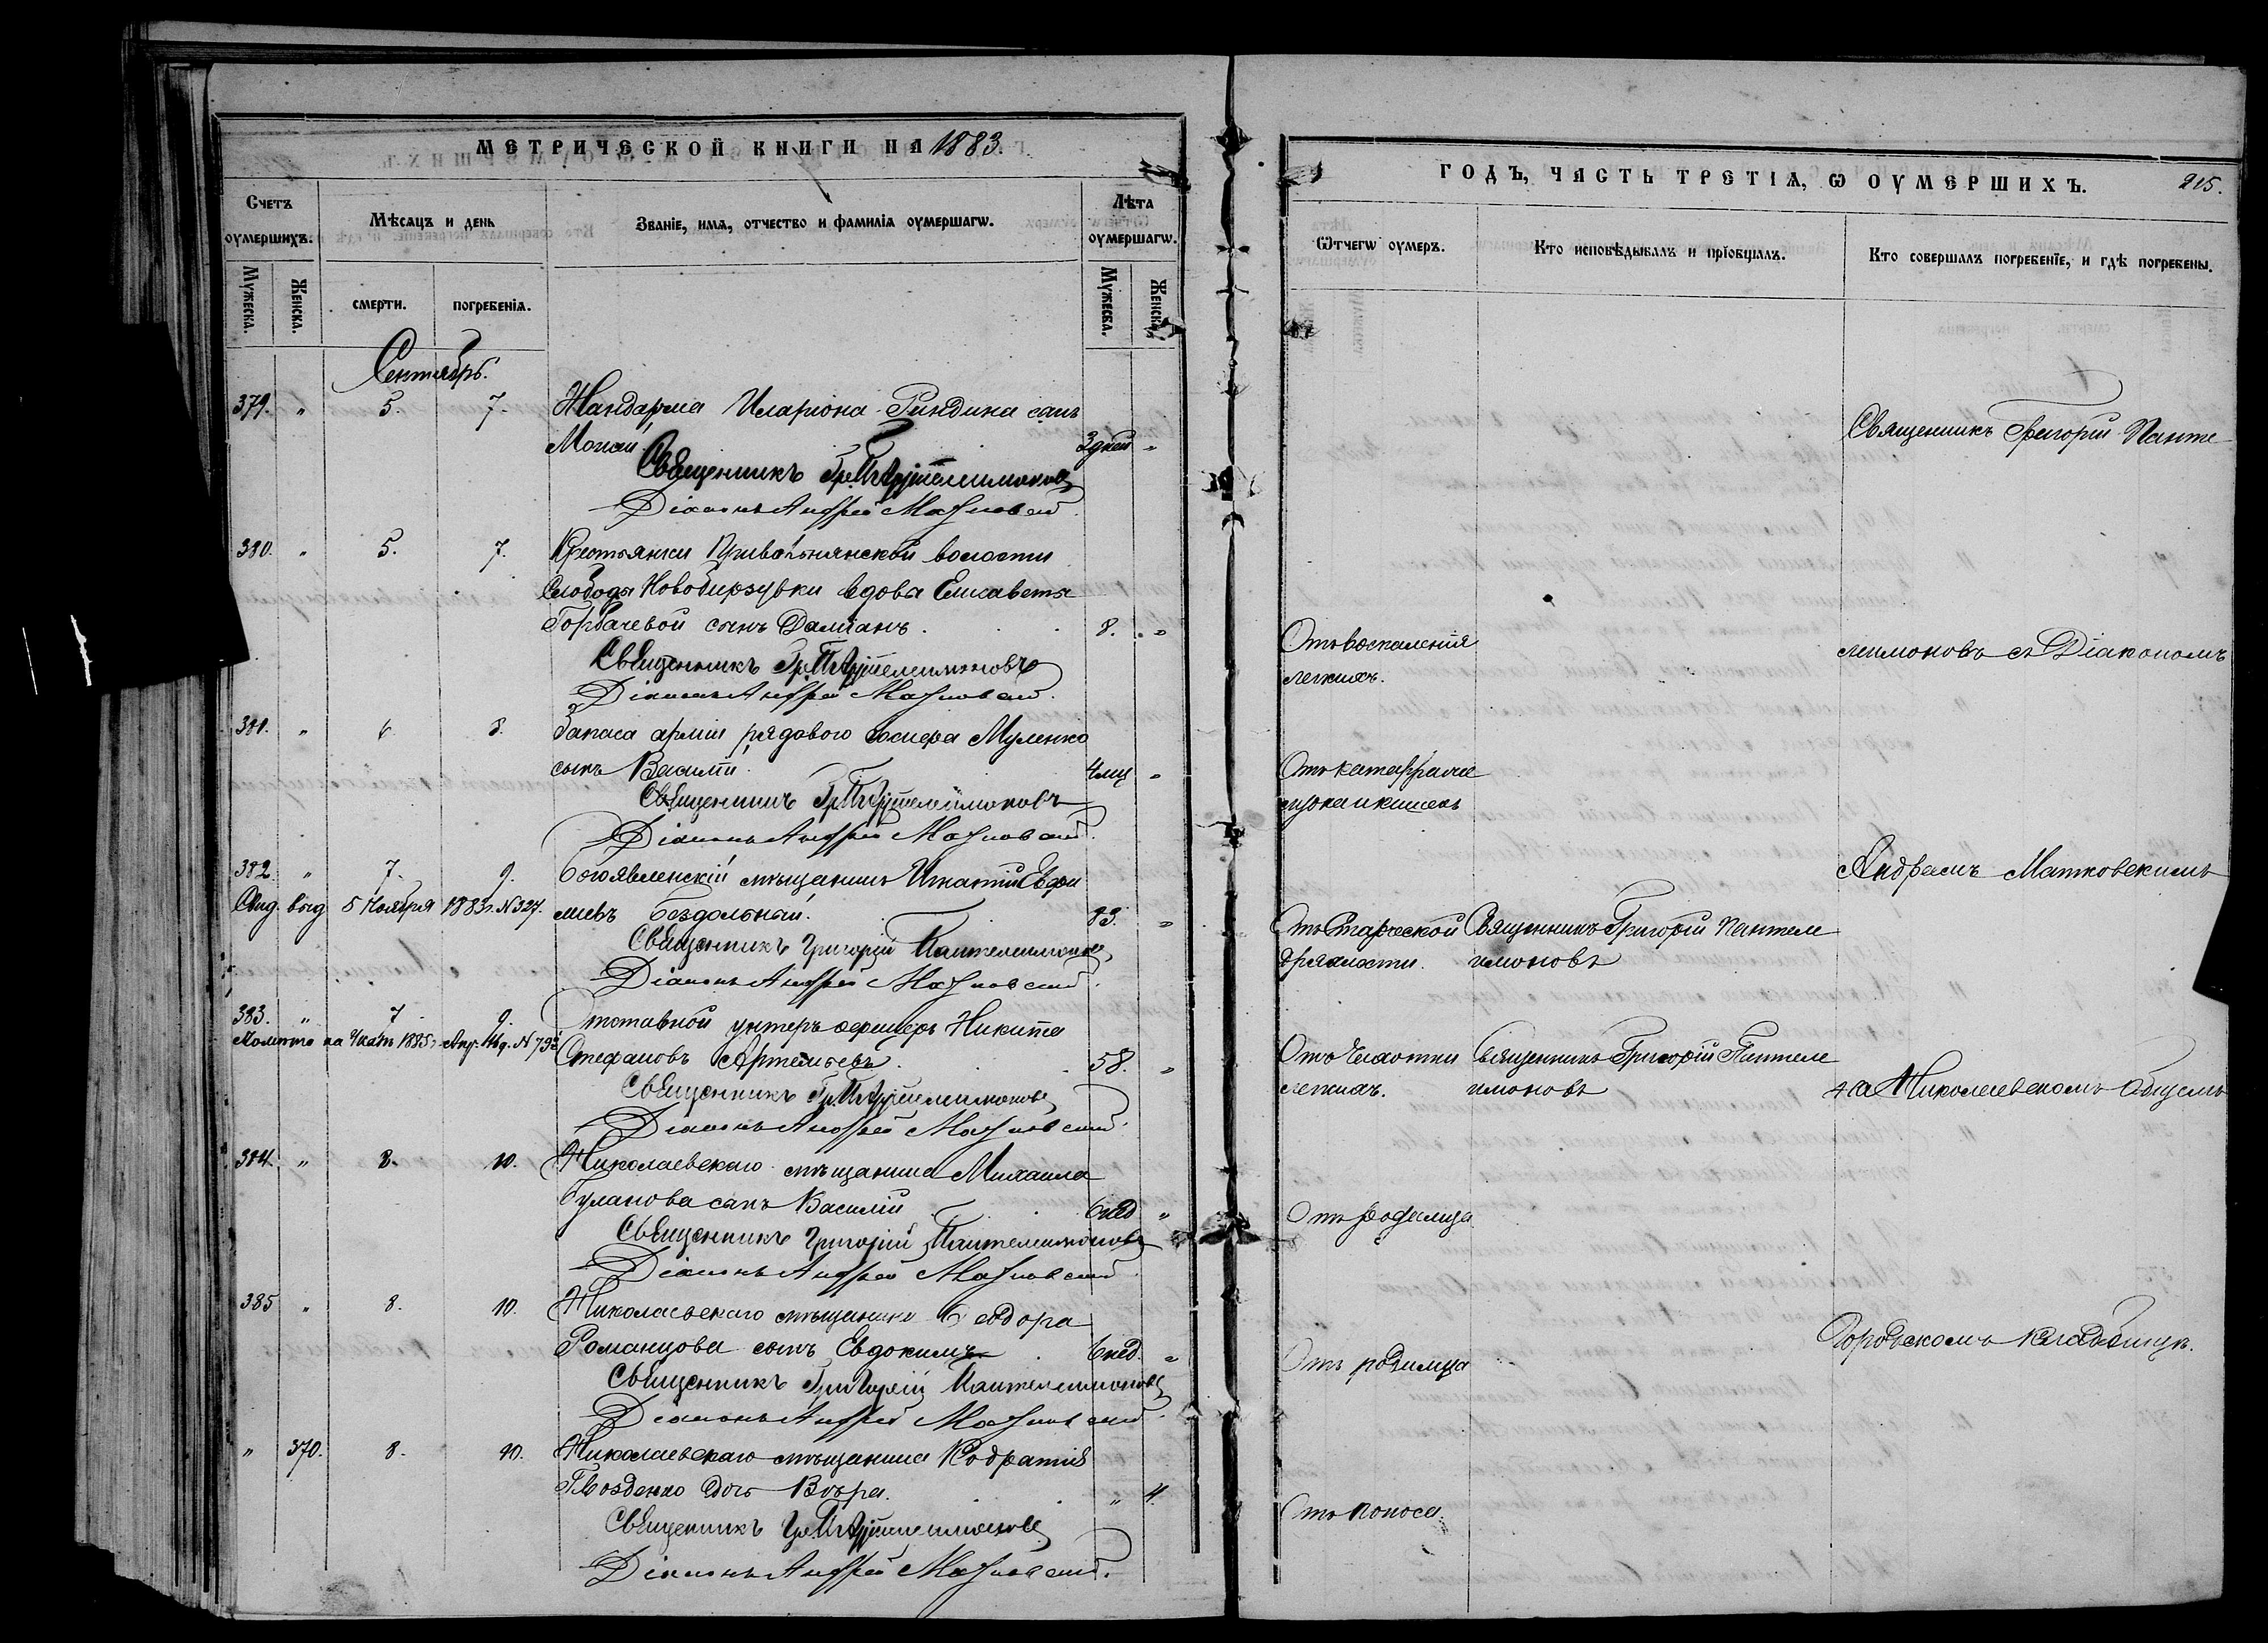 МЕТРИЧЕСКОЙ КНИГИ НА 1883.
Счетъ оумершихъ.
Мѣсяцъ и день
Званіе, имя, отчество и фамилія оумершагѡ.
Лѣта оумершагѡ.
Мужеска.
Женска.
смерти.
погребенія.
Мужеска.
Женска.
Сентябрь.
379. " 5. 7. Жандарма Иларіона Риндина сынъ
3 дней "
Священникъ Гр. Пантелеимоновъ
Діаконъ Андрей Матковскій.
380. " 5. 7. Крестьянки Привольнянской волости
Слободы Новобирзувки вдовы Елисаветы
Горбачевой сынъ Даміанъ. 8. "
Священникъ Гр. Пантелеимоновъ
Діаконъ Андрей Матковскій.
381. " 6 8. Запаса арміи рядового Іосифа Муленко
сынъ Василій. 4 мц "
Священникъ Гр. Пантелеимоновъ
Діаконъ Андрей Матковскій.
382. " 7. 9. Богоявленскій мѣщанинъ Игнатій Евфи
Свид. выд 5 Ноября 1883 г. N 327. міевъ Бездольный. 83. "
Священникъ Григорій Пантелеимоновъ
Діаконъ Андрей Матковскій.
383. " 7. 9. Отставной унтеръ офицеръ Никита
1885 г. Стефановъ Артемьевъ. 58. "
Священникъ Гр. Пантелеимоновъ
Діаконъ Андрей Матковскій.
384. " 8. 10. Николаевскаго мѣщанина Михаила
Буланова сынъ Василій 6 нед "
Священникъ Григорій Пантелеимоновъ
Діаконъ Андрей Матковскій.
385 " 8. 10. Николаевскаго мѣщанина Ѳеодора
Романцова сынъ Евдокимъ. 6 нед. "
Священникъ Григорій Пантелеимоновъ
Діаконъ Андрей Матковскій.
" 370. 8. 10. Николаевскаго мѣщанина Кодратія
Гвозденко дочь Вѣра. " 4.
Священникъ Гр. Пантелеимоновъ
Діаконъ Андрей Матковскій.
ГОДЪ, ЧАСТЬ ТРЕТІЯ, Ѡ ОУМЕРШИХЪ. 215.
Ѿчегѡ оумеръ.
Кто исповѣдывалъ и пріобщалъ.
Кто совершалъ погребеніе, и гдѣ погребены.
Священникъ Григорій Панте-
Отъ воспаленія
легкихъ.
леимоновъ съ Діакономъ
Отъ катарра
Андреемъ Матковскимъ
Отъ старческой Священникъ Григорій Пантеле
дряхлости. имоновъ
Отъ чахотки Священникъ Григорій Пантеле
легкихъ. имоновъ
на Николаевскомъ общемъ
Отъ родимца
Городскомъ кладбищѣ.
Отъ родимца
Отъ поноса.